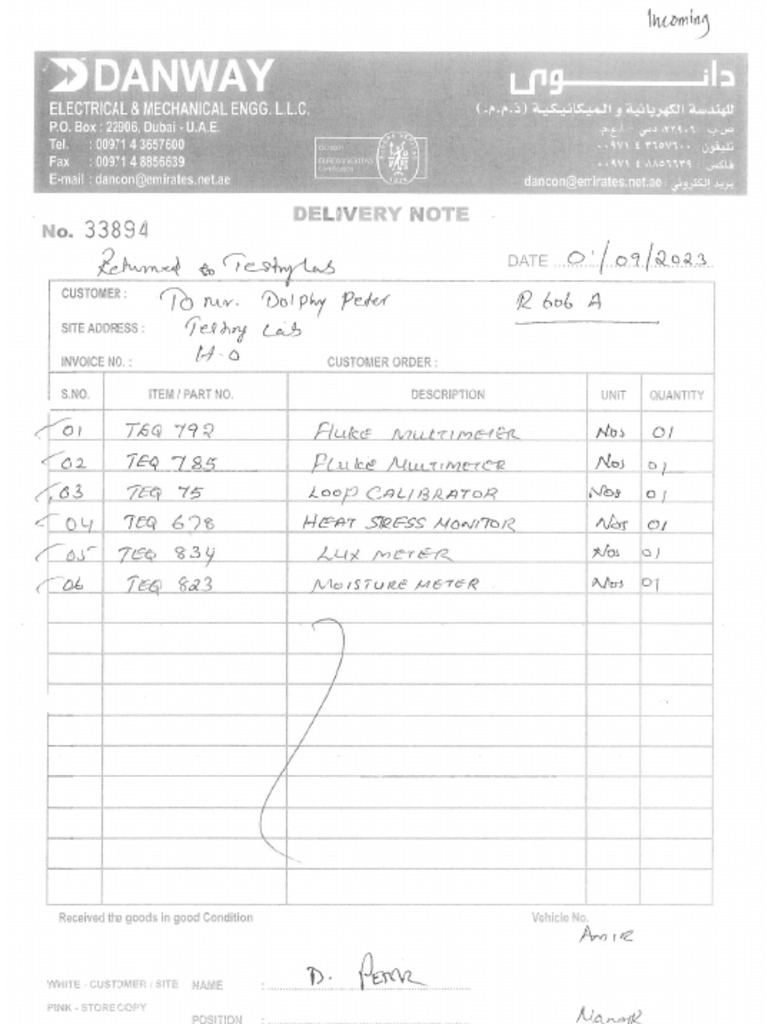 Incoming
DANWAY
دانوي
ELECTRICAL & MECHANICAL ENGG. L.L.C.
للهندسة الكهربائية و الميكانيكية (ذ.م.م.)
P.O. Box : 22906, Dubai - U.A.E.
ص.ب. ٢٢٩٠٦، دبي - أ.ع.م.
Tel. : 00971 4 3657600
تليفون : ٣٦٥٧٦٠٠ ٤ ٠٠٩٧١
Fax : 00971 4 8856639
فاكس : ٨٨٥٦٦٣٩ ٤ ٠٠٩٧١
E-mail : dancon@emirates.net.ae
بريد إلكتروني : dancon@emirates.net.ae
DELIVERY NOTE
No. 33894
Returned to Testing Lab
DATE 01/09/2023
CUSTOMER : To Mr. Dolphy Peter R 606 A
SITE ADDRESS : Testing Lab
H.O
INVOICE NO. : CUSTOMER ORDER :
S.NO. ITEM / PART NO. DESCRIPTION UNIT QUANTITY
01 TEQ 792 FLUKE MULTIMETER Nos 01
02 TEQ 785 FLUKE MULTIMETER Nos 01
03 TEQ 75 LOOP CALIBRATOR Nos 01
04 TEQ 678 HEAT STRESS MONITOR Nos 01
05 TEQ 834 LUX METER Nos 01
06 TEQ 823 MOISTURE METER Nos 01
Received the goods in good Condition Vehicle No.
AMIR
WHITE - CUSTOMER / SITE NAME : D. PETER
PINK - STORE COPY
POSITION :